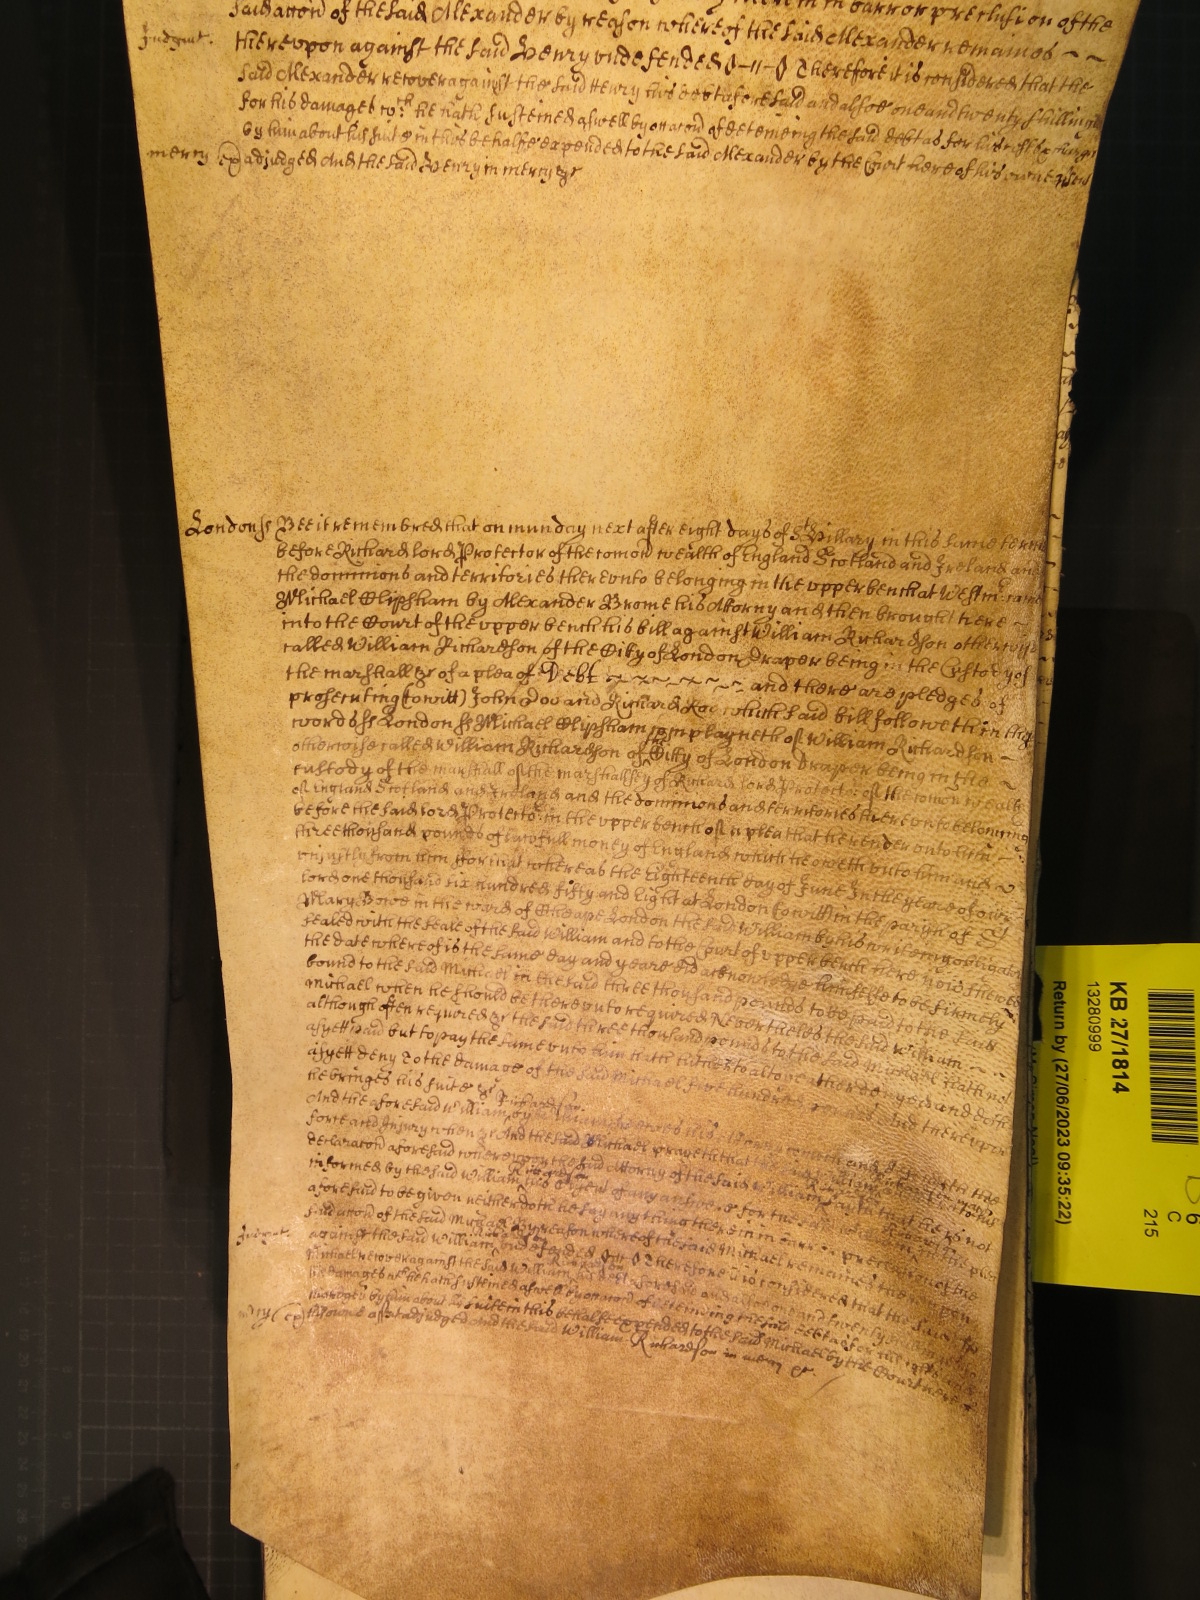 Saidaccon of the said Alexander by reason whereof the said Alexander remaines
Judgmt. thereupon against the said Henry undefended Therefore it is considered that the
said Alexander recover against the said Henry his debt aforesaid and alsoe one and twenty shillings
for his damages wch he hath susteined aswell by occacon of deteineing the said debt as for his costs & charges
by him about his suite in this behalfe expended to the said Alexander by the Court here of his owne assent
mercy adjudged And the said Henry in mercy &c
London ss Bee it remembred that on munday next after eight days of St Hillary in this same terme
before Richard lord Protector of the comon wealth of England Scotland and Ireland and
the dominions and territories thereunto belonging in the upper bench at Westmr came
Michael Clipsham by Alexander Brome his Attorny and then brought here
into the Court of the upper bench his bill against William Richardson otherwise
called William Richardson of the Citty of London Draper being in the Custody of
the marshall &c of a plea of Debt and there are pledges of
prosecuting (to witt) John Doo and Richard Roo which said bill followeth in these
words ss London ss Michael Clipsham complayneth of William Richardson
otherwise called William Richardson of the Citty of London Draper being in the
custody of the marshall of the marshallsey of Richard lord Protector of the comon wealth
of England Scotland and Ireland and the dominions and territories thereunto belonging
before the said lord Protector in the upper bench of a plea that he render unto him
three thousand pounds of lawfull money of England which he oweth unto him and
unjustly from him for that whereas the Eighteenth day of June In the yeare of our
lord one thousand six hundred fifty and Eight at London (to witt) in the parish of
Mary Bowe in the ward of Cheape London the said William by his writeing obligatory
sealed with the seale of the said William and to the Court of upper bench here now shewed
the date whereof is the same day and yeare did acknowledge himselfe to be firmely
bound to the said Michael in the said three thousand pounds to be paid to the said
Michael when he should be thereunto required Neverthelesse the said William
although often required &c the said three thousand pounds to the said Michael hath not
as yett paid but to pay the same unto him hath hitherto altogether denyed and doth
as yett deny To the damage of the said Michael five hundred pounds And thereupon
he bringes his suite &c
And the aforesaid William Richardson by his Attorny cometh and defendeth the
force and Injury when &c And the said Michael prayeth that the said William
declaracon aforesaid whereupon the said Attorny of the said William saith that he is not
informed by the said William Richardson his of any answere for the said William in the plea
aforesaid to be given neither doth he say any thing therein in barr or preclusion of the
said accon of the said Michael By reason whereof the said Michael remaines thereupon
Judgmt. against the said William Richardson undefended Therefore it is considered that the said
Michael recover against the said William Richardson his debt aforesaid and alsoe one and twenty shillings for
his damages wch he hath susteined aswell by occacon of deteineing the said debt as for his costs
charges by him about his suite in this behalfe expended to the said Michael by the Court here
mercy of his owne assent adjudged And the said William Richardson in mercy &c.
KB 27/1814
13280999
Return by (27/06/2023 09:35:22)
C
215